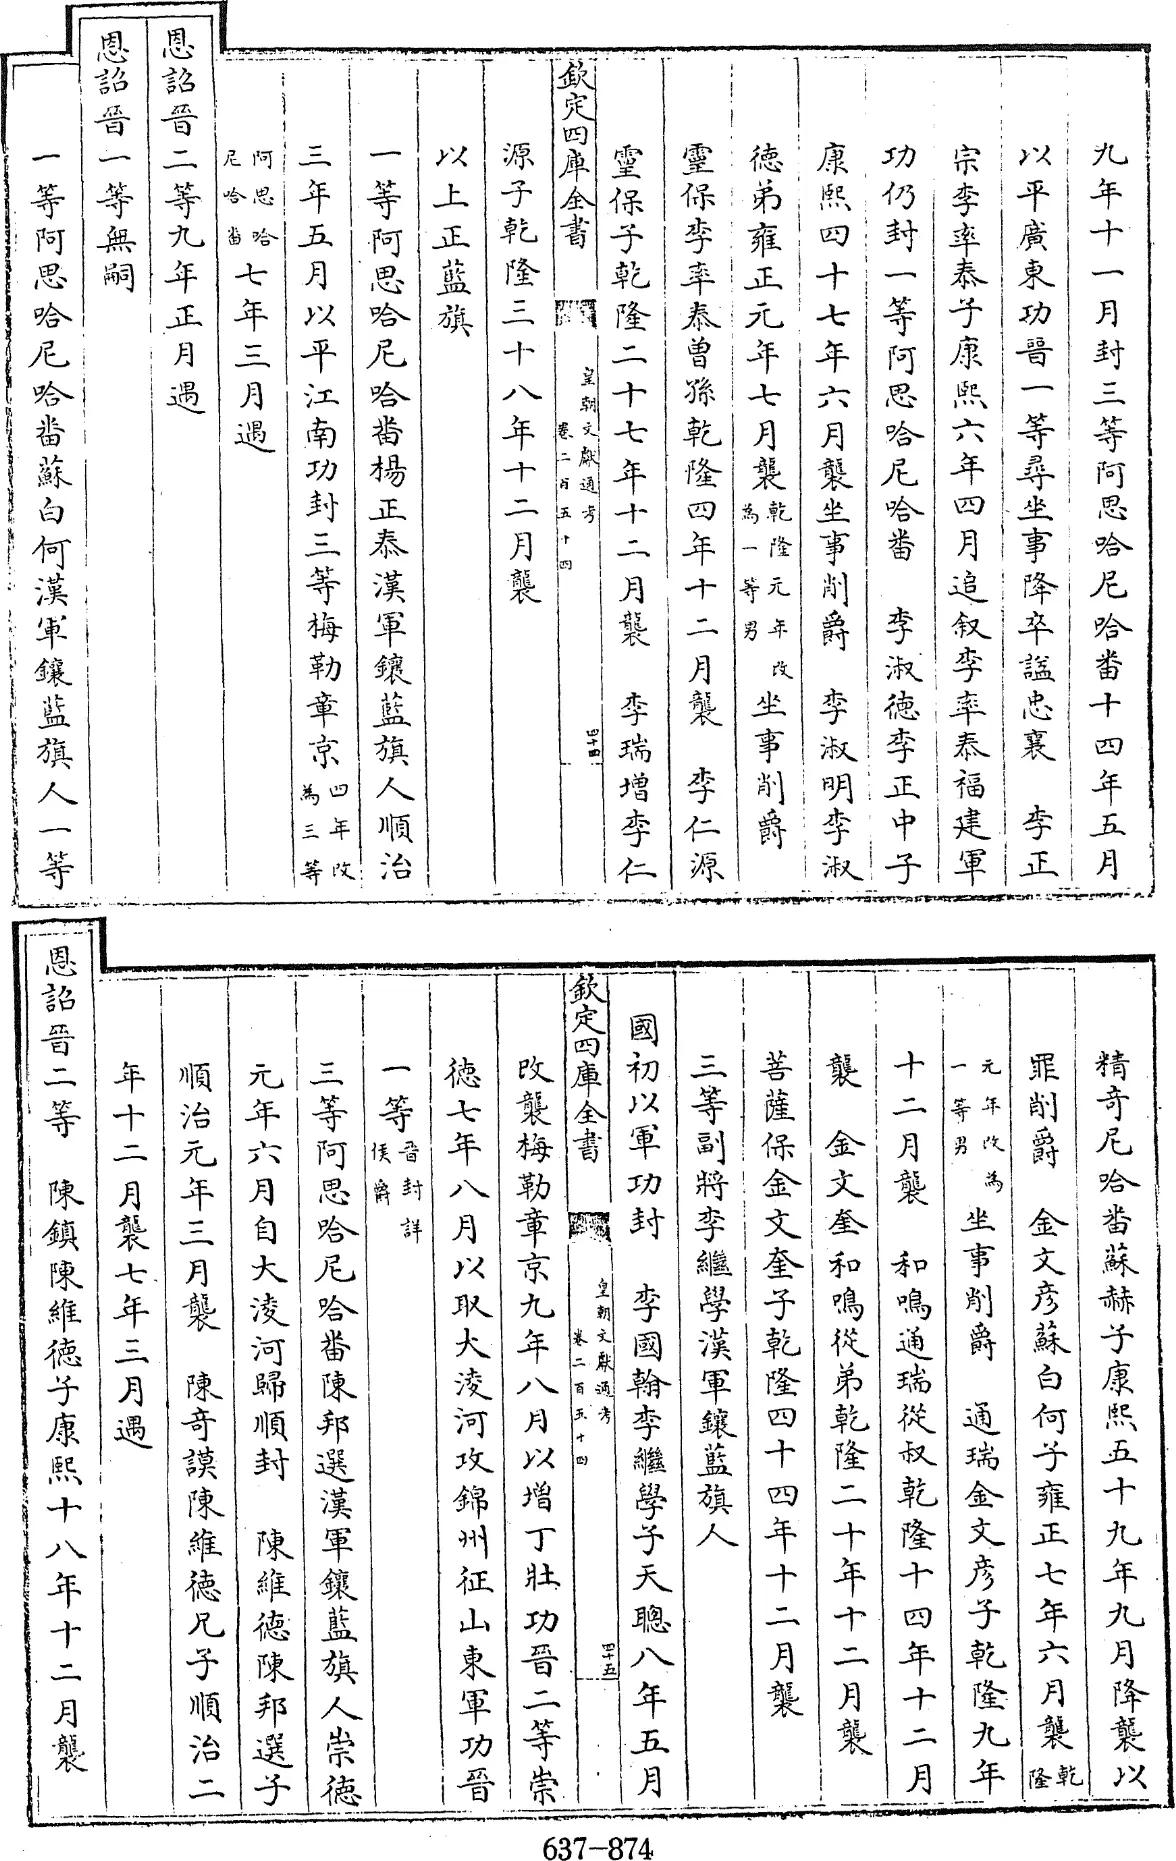 九年十一月封三等阿思哈尼哈畨十四年五月
以平廣東功晉一等尋坐事降卒諡忠襄　李正
宗李率泰子康熙六年四月追叙李率泰福建軍
功仍封一等阿思哈尼哈畨　李淑德李正中子
康熙四十七年六月襲坐事削爵　李淑明李淑
德弟雍正元年七月襲乾隆元年改為一等男坐事削爵
靈保李率泰曾孫乾隆四年十二月襲　李仁源
靈保子乾隆二十七年十二月襲　李瑞增李仁
欽定四庫全書　皇朝文獻通考卷二百五十四　四十四
源子乾隆三十八年十二月襲
以上正藍旗
一等阿思哈尼哈畨楊正泰漢軍鑲藍旗人順治
三年五月以平江南功封三等梅勒章京四年改為三等
阿思哈尼哈畨七年三月遇
恩詔晉二等九年正月遇
恩詔晉一等無嗣
一等阿思哈尼哈畨蘇白何漢軍鑲藍旗人一等
精奇尼哈畨蘇赫子康熙五十九年九月降襲以
罪削爵　金文彦蘇白何子雍正七年六月襲乾隆
元年改為一等男坐事削爵　通瑞金文彦子乾隆九年
十二月襲　和鳴通瑞從叔乾隆十四年十二月
襲　金文奎和鳴從弟乾隆二十年十二月襲
菩薩保金文奎子乾隆四十四年十二月襲
三等副將李繼學漢軍鑲藍旗人
國初以軍功封　李國翰李繼學子天聰八年五月
欽定四庫全書　皇朝文獻通考卷二百五十四　四十五
改襲梅勒章京九年八月以增丁壯功晉二等崇
德七年八月以取大淩河攻錦州征山東軍功晉
一等晉封侯爵詳
三等阿思哈尼哈畨陳邦選漢軍鑲藍旗人崇德
元年六月自大淩河歸順封　陳維德陳邦選子
順治元年三月襲　陳奇謨陳維德兄子順治二
年十二月襲七年三月遇
恩詔晉二等　陳鎮陳維德子康熙十八年十二月襲
637-874